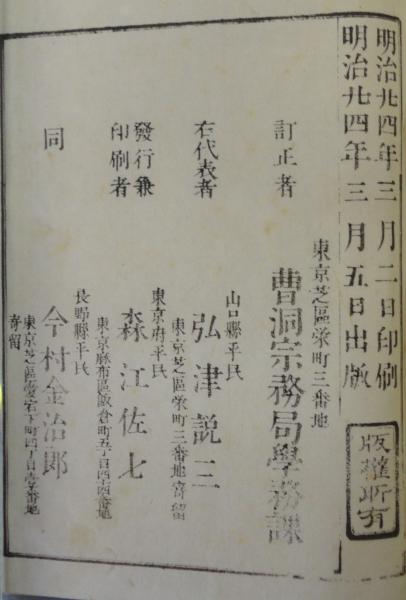 明治廿四年三月二日印刷
明治廿四年三月五日出版
版權所有
東京芝區栄町三番地
訂正者 曹洞宗務局學務課
山口縣平民
右代表者 弘津説三
東京芝區栄町三番地寄留
東京府平民
發行兼印刷者 森江佐七
東京麻布區飯倉町五丁目四十四番地
長野縣平民
同 今村金治郎
東京芝區愛宕下町四丁目壹番地
寄留